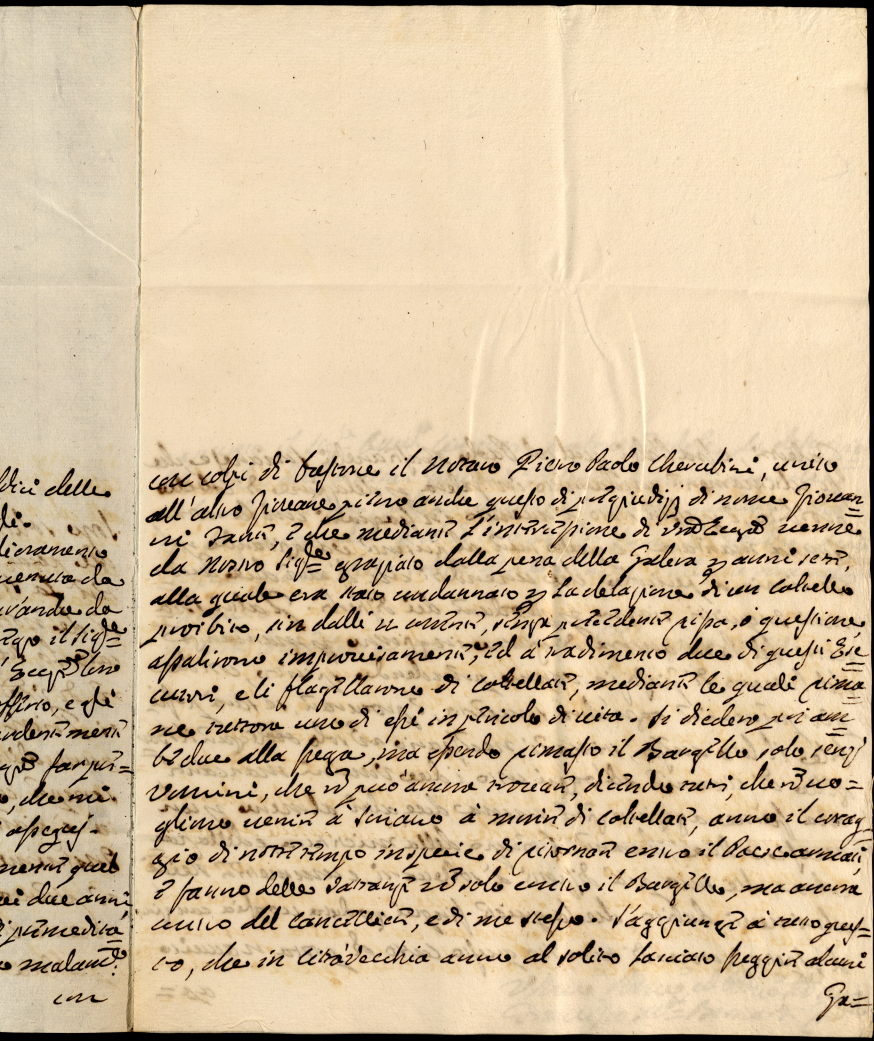 dici delle
di.
licramente
venuta da
vándu da
il Sigre
Eccza
offitio, e gli
mente
far
, che mi
assegj-
mente quel
ei due anni
premedita=
malam:
con
con colpi di bastone il Notaro Pietro Paolo Cherubini, unito
all'altro Giovane pieno anche questo di pregiudizj di nome Giovan=
ni Santi, e che mediante l'intercessione di vra Eccza venne
da Nostro Sigre graziato dalla pena della Galera p anni sette,
alla quale era stato condannato p la delazione di un coltello
proibito, sin dalli senza precedente rissa, o questione
assalirono improvisamente, ed a tradimento due di questi Ese=
cutori, e li flagellarono di coltellate, mediante le quali rima=
ne tuttora uno di essi in pericolo di vita. Si diedero poi am=
bidue alla fuga, ma essendo rimasto il Bargello solo senz'
Uomini, che nō può ancora trovare, dicendo tutti, che nō vo=
gliono venire à Soriano à morire di coltellate, anno il corag=
gio di notte tempo in specie di ritornare entro il Paese armati,
e fanno delle nō solo contro il Bargello, ma ancora
contro del Cancelliere, e di me stesso. S'aggiunge à tutto ques=
to, che in Cittàvecchia anno al solito lasciato fuggire alcuni
Ga=